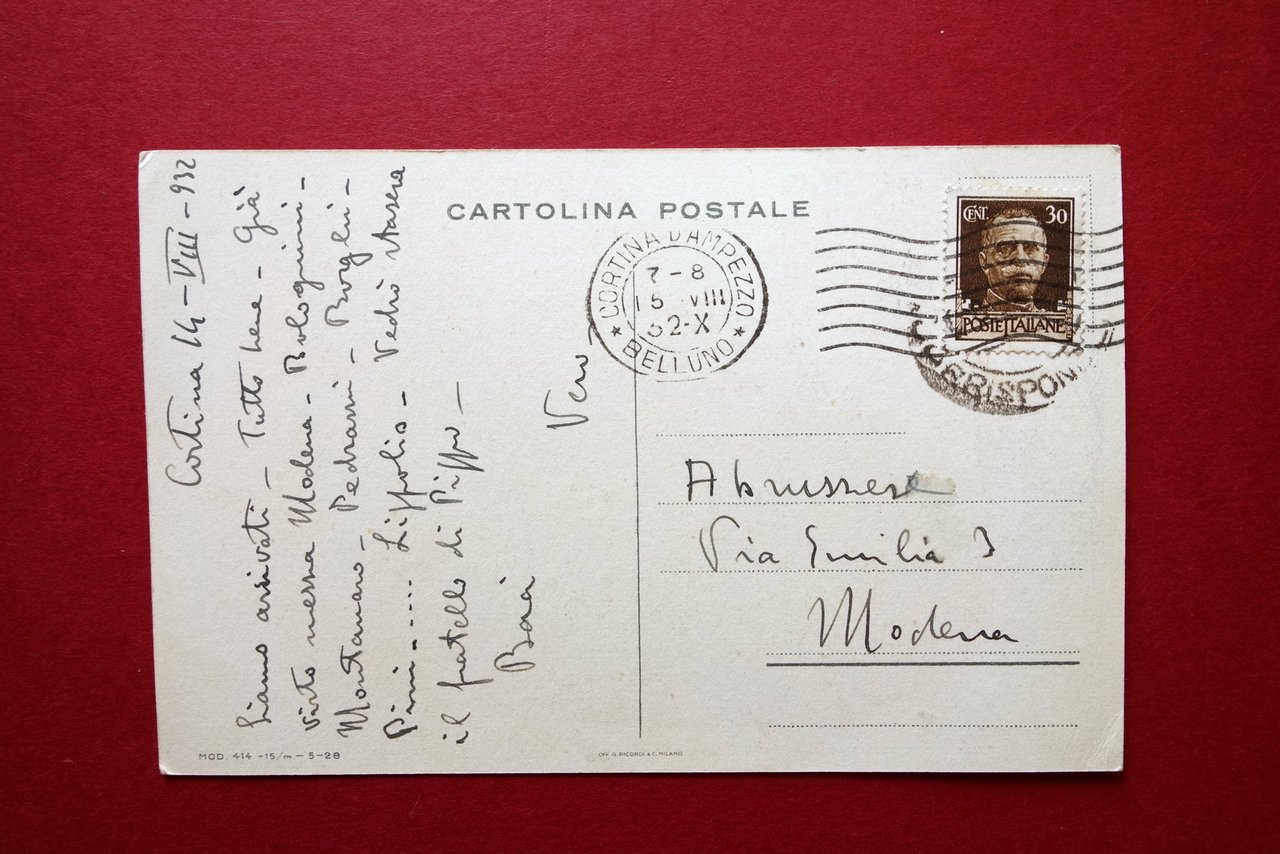 CARTOLINA POSTALE
CORTINA D'AMPEZZO
7-8
15 VIII
32-X
* BELLUNO *
CENT. 30
POSTE ITALIANE
CORRISPON
Cortina 14-VIII-932
Siamo arrivati - Tutto bene - Già
visto mezza Modena - Bolognini -
Montanaro - Pedrazzi - Borghi -
Pini ..... Lippolis - Vedrò stasera
il fratello di Pippo -
Baci
Vero
Abruzzese
Via Emilia 3
Modena
MOD. 414 -15/m.- 5-28
OFF. G. RICORDI & C. MILANO